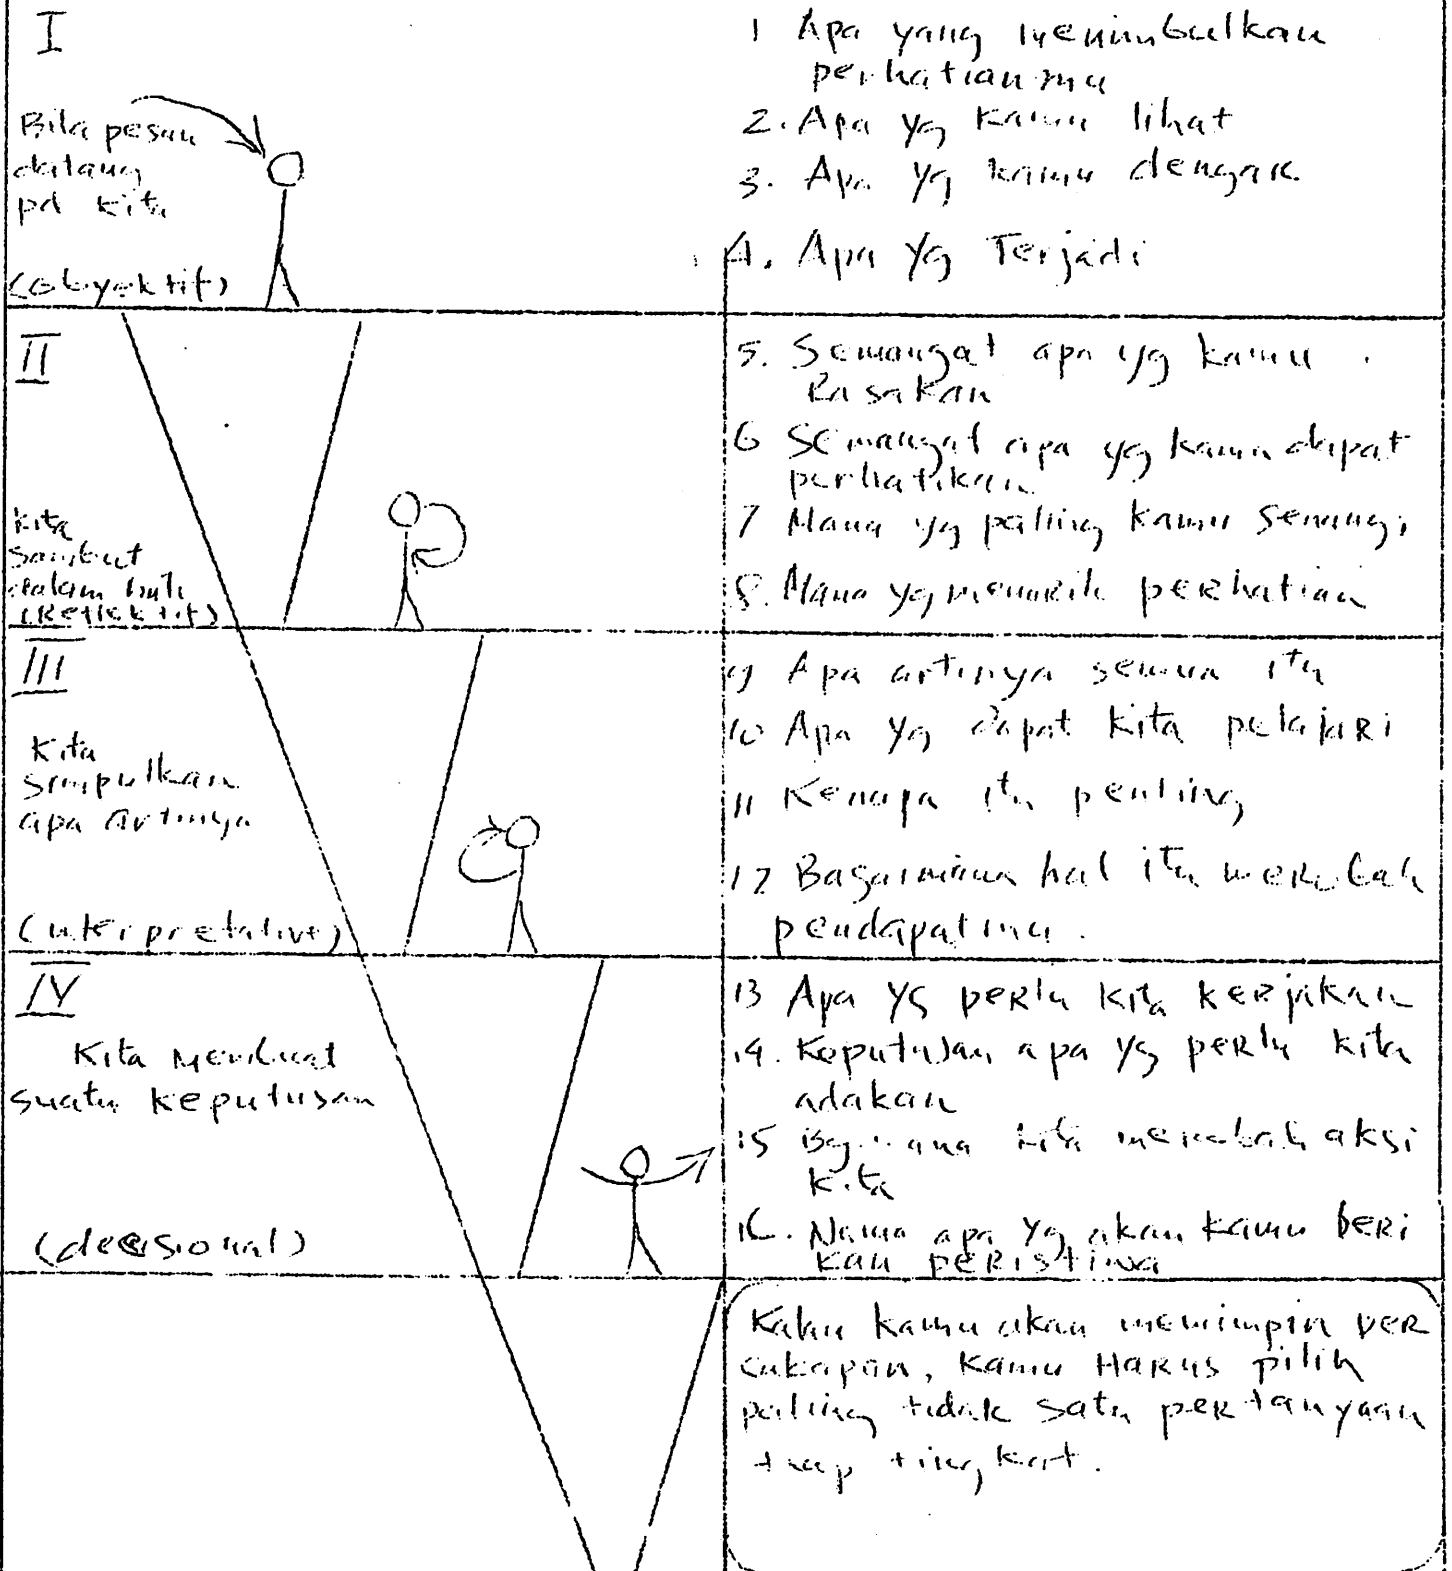 I
Bila pesan
datang
pd kita
(obyektif)
1 Apa yang menimbulkan
perhatianmu
2. Apa yg kamu lihat
3. Apa yg kamu dengar
4. Apa yg Terjadi
II
kita
sambut
dalam hati
(Reflektif)
5. Semangat apa yg kamu
Rasakan
6 Semangat apa yg kamu dapat
perhatikan
7 Mana yg paling kamu senangi
8. Mana yg menarik perhatian
III
Kita
simpulkan
apa artinya
(interpretative)
9 Apa artinya semua itu
10 Apa yg dapat kita pelajari
11 Kenapa itu penting
12 Bagaimana hal itu merubah
pendapatmu.
IV
Kita membuat
suatu keputusan
(decisional)
13 Apa yg perlu kita kerjakan
14. Keputusan apa yg perlu kita
adakan
15 Bgmana kita merubah aksi
kita
16. Nama apa yg akan kamu beri
kan peristiwa
Kalau kamu akan memimpin per
cakapan, kamu Harus pilih
paling tidak satu pertanyaan
tiap tingkat.